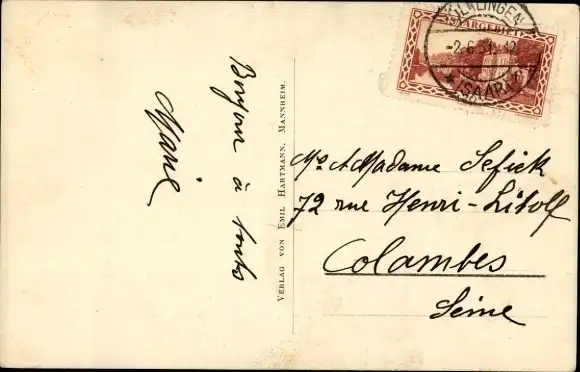 VÖLKLINGEN
SAARGEBIET
-2.6.31.
* (SAAR)
Bonjour à toutes
Marie
VERLAG VON EMIL HARTMANN, MANNHEIM.
Mr et Madame Sefick
72 rue Henri-Litolf
Colambes
Seine